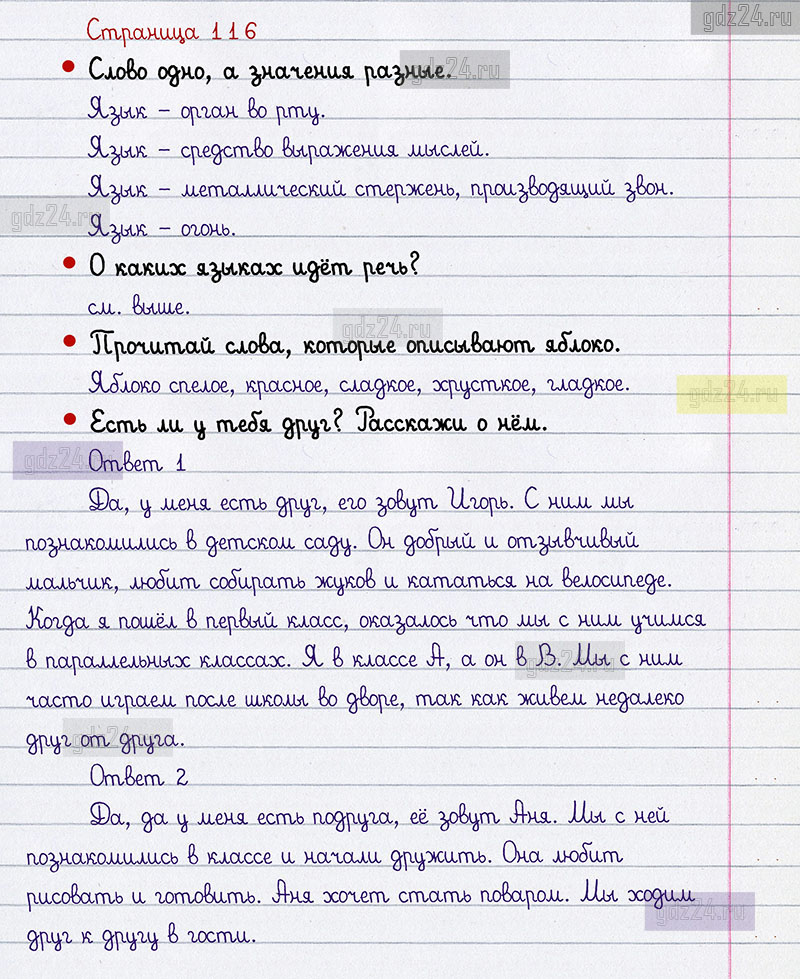 gdz24.ru
Страница 116
Слово одно, а значения разные.
gdz24.ru
Язык – орган во рту.
Язык – средство выражения мыслей.
Язык – металлический стержень, производящий звон.
gdz24.ru
Язык – огонь.
О каких языках идёт речь?
см. выше.
gdz24.ru
Прочитай слова, которые описывают яблоко.
Яблоко спелое, красное, сладкое, хрусткое, гладкое.
gdz24.ru
Есть ли у тебя друг? Расскажи о нём.
gdz24.ru
Ответ 1
Да, у меня есть друг, его зовут Игорь. С ним мы
познакомились в детском саду. Он добрый и отзывчивый
мальчик, любит собирать жуков и кататься на велосипеде.
Когда я пошёл в первый класс, оказалось что мы с ним учимся
в параллельных классах. Я в классе А, а он в В. Мы с ним
gdz24.ru
часто играем после школы во дворе, так как живем недалеко
друг от друга.
gdz24.ru
Ответ 2
Да, да у меня есть подруга, её зовут Аня. Мы с ней
познакомились в классе и начали дружить. Она любит
рисовать и готовить. Аня хочет стать поваром. Мы ходим
gdz24.ru
друг к другу в гости.